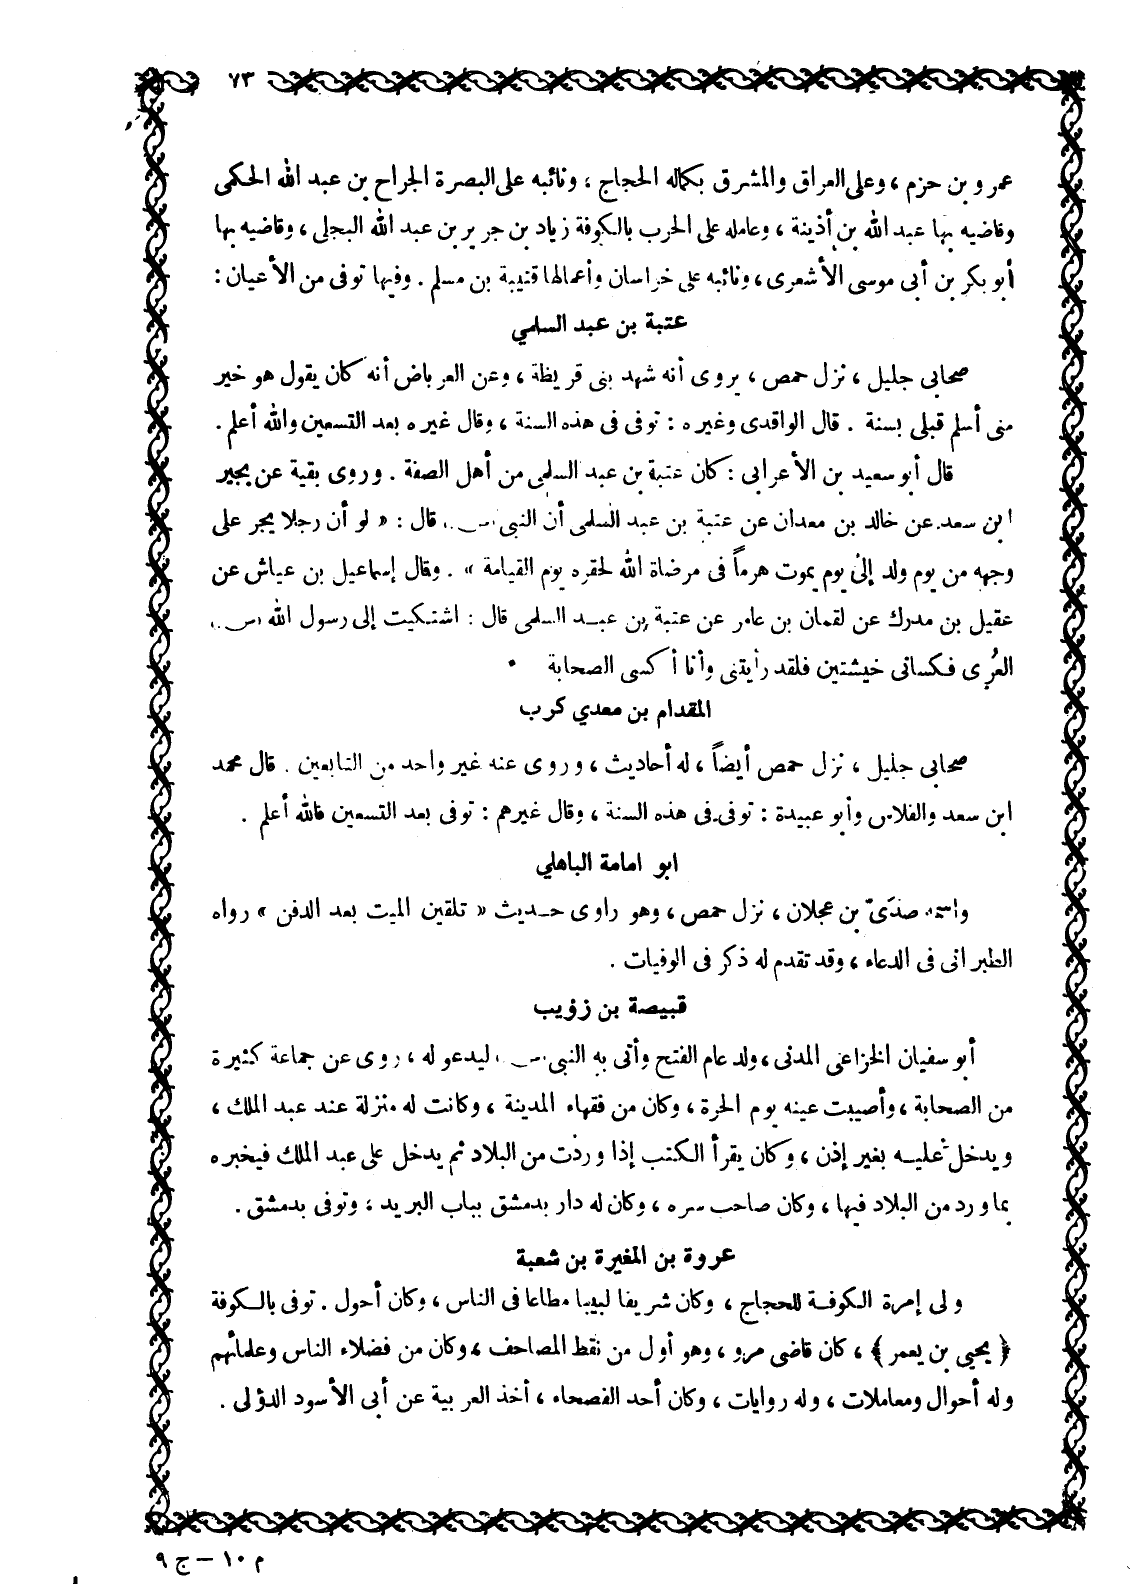 ٧٣
عمرو بن حزم ، وعلى العراق والمشرق بكماله الحجاج ، ونائبه على البصرة الجراح بن عبد الله الحكمى
وقاضيه بها عبد الله بن أذينة ، وعامله على الحرب بالكوفة زياد بن جرير بن عبد الله البجلى ، وقاضيه بها
أبو بكر بن أبى موسى الأشعرى ، ونائبه على خراسان وأعمالها قتيبة بن مسلم . وفيها توفى من الأعيان :
عتبة بن عبد السلمي
صحابى جليل ، نزل حمص ، يروى أنه شهد بنى قريظة ، وعن العرباض أنه كان يقول هو خير
منى أسلم قبلى بسنة . قال الواقدى وغيره : توفى فى هذه السنة ، وقال غيره بعد التسعين والله أعلم .
قال أبو سعيد بن الأعرابى : كان عتبة بن عبد السلمى من أهل الصفة . وروى بقية عن بجير
ابن سعد عن خالد بن معدان عن عتبة بن عبد السلمى أن النبى (س) قال : « لو أن رجلا يجر على
وجهه من يوم ولد إلى يوم يموت هرماً فى مرضاة الله لحقره يوم القيامة » . وقال إسماعيل بن عياش عن
عقيل بن مدرك عن لقمان بن عامر عن عتبة بن عبد السلمى قال : اشتكيت إلى رسول الله (س)
العُرى فكسانى خيشتين فلقد رأيتنى وأنا أكسى الصحابة .
المقدام بن معدي كرب
صحابى جليل ، نزل حمص أيضاً ، له أحاديث ، وروى عنه غير واحد من التابعين . قال محمد
ابن سعد والفلاس وأبو عبيدة : توفى فى هذه السنة ، وقال غيرهم : توفى بعد التسعين فالله أعلم .
ابو امامة الباهلي
واسمه صدَىّ بن عجلان ، نزل حمص ، وهو راوى حديث « تلقين الميت بعد الدفن » رواه
الطبرانى فى الدعاء ، وقد تقدم له ذكر فى الوفيات .
قبيصة بن زؤيب
أبو سفيان الخزاعى المدنى ، ولد عام الفتح وأتى به النبى (س) ليدعو له ، روى عن جماعة كثيرة
من الصحابة ، وأصيبت عينه يوم الحرة ، وكان من فقهاء المدينة ، وكانت له منزلة عند عبد الملك ،
ويدخل عليه بغير إذن ، وكان يقرأ الكتب إذا وردت من البلاد ثم يدخل على عبد الملك فيخبره
بما ورد من البلاد فيها ، وكان صاحب سره ، وكان له دار بدمشق بباب البريد ، وتوفى بدمشق .
عروة بن المغيرة بن شعبة
ولى إمرة الكوفة للحجاج ، وكان شريفا لبيبا مطاعا فى الناس ، وكان أحول . توفى بالكوفة
﴿ يحيى بن يعمر ﴾ ، كان قاضى مرو ، وهو أول من نقط المصاحف ، وكان من فضلاء الناس وعلمائهم
وله أحوال ومعاملات ، وله روايات ، وكان أحد الفصحاء ، أخذ العربية عن أبى الأسود الدؤلى .
م ١٠ – ج ٩